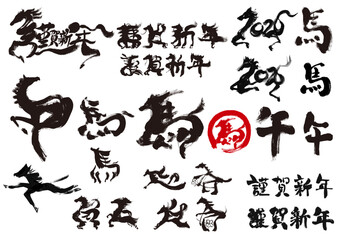 謹賀新年
謹賀新年
謹賀新年
2026
馬
2026
馬
馬
馬
馬
午
午
謹賀新年
謹賀新年